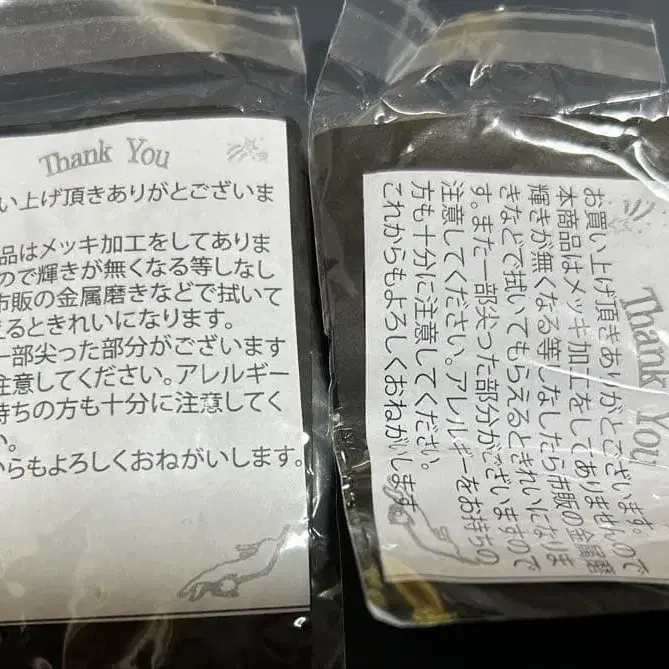 Thank You
い上げ頂きありがとございま
品はメッキ加工をしてありま
ので輝きが無くなる等しなし
市販の金属磨きなどで拭いて
えるときれいになります。
一部尖った部分がございます
注意してください。アレルギー
持ちの方も十分に注意してく
い。
からもよろしくおねがいします。
Thank You
お買い上げ頂きありがとございます。
本商品はメッキ加工をしてありませんので
輝きが無くなる等しなしたら市販の金属磨
きなどで拭いてもらえるときれいになりま
す。また一部尖った部分がございますので
注意してください。アレルギーをお持ちの
方も十分に注意してください。
これからもよろしくおねがいします